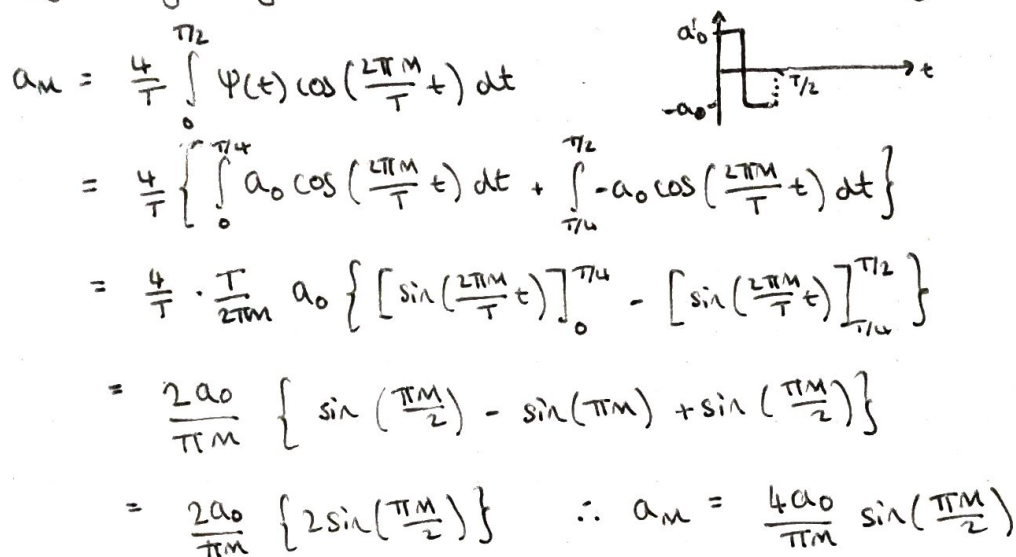 a_M = 4/T ∫_0^{T/2} Ψ(t) cos(2πM/T t) dt
a'_0
-a_0
T/2
t
= 4/T { ∫_0^{T/4} a_0 cos(2πM/T t) dt + ∫_{T/4}^{T/2} -a_0 cos(2πM/T t) dt }
= 4/T · T/2πM a_0 { [sin(2πM/T t)]_0^{T/4} - [sin(2πM/T t)]_{T/4}^{T/2} }
= 2a_0/πM { sin(πM/2) - sin(πM) + sin(πM/2) }
= 2a_0/πM { 2sin(πM/2) } ∴ a_M = 4a_0/πM sin(πM/2)